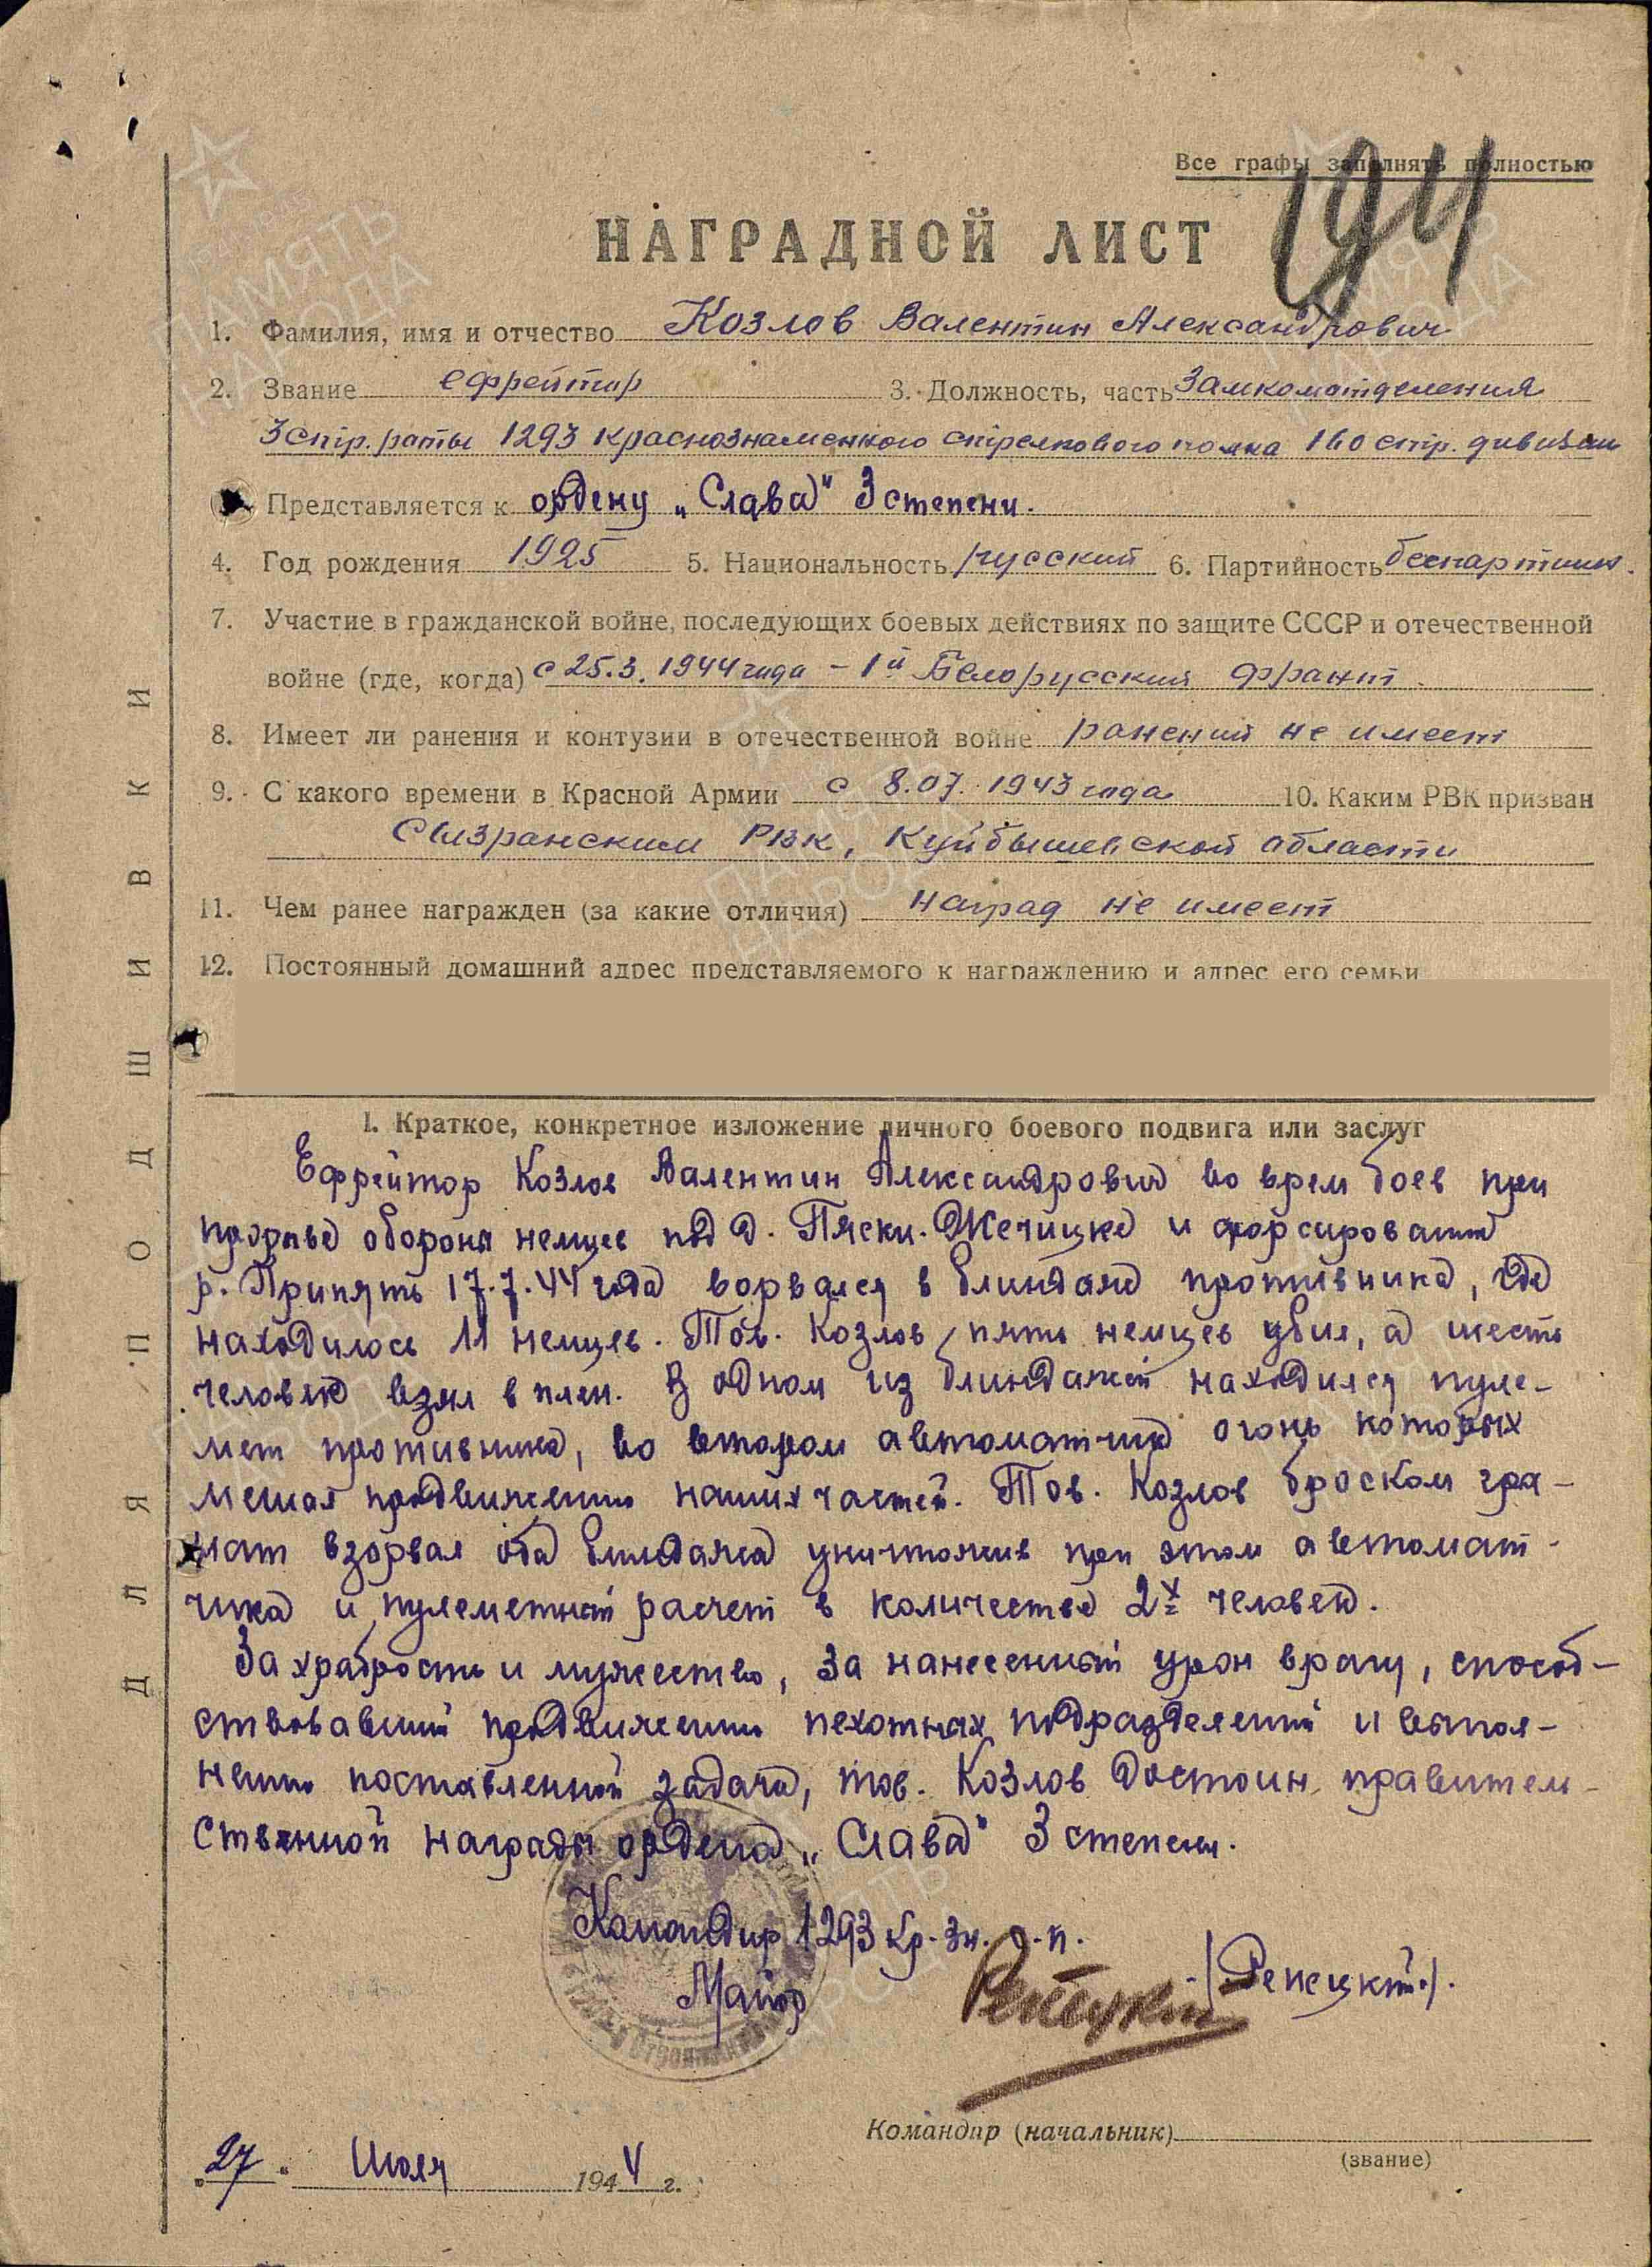 Все графы заполнять полностью
194
НАГРАДНОЙ ЛИСТ
1. Фамилия, имя и отчество Козлов Валентин Александрович
2. Звание ефрейтор 3. Должность, часть Замкоматделения
3 стр. роты 1293 краснознаменного стрелкового полка 160 стр. дивизии
Представляется к ордену „Слава" 3 степени.
4. Год рождения 1925 5. Национальность русский 6. Партийность беспартийн.
7. Участие в гражданской войне, последующих боевых действиях по защите СССР и отечественной
войне (где, когда) с 25.3.1944 года - 1й Белорусский фронт.
8. Имеет ли ранения и контузии в отечественной войне ранений не имеет
9. С какого времени в Красной Армии с 8.07.1943 года 10. Каким РВК призван
Сызранским РВК, Куйбышевской области
11. Чем ранее награжден (за какие отличия) наград не имеет
12. Постоянный домашний адрес представляемого к награждению и адрес его семьи
I. Краткое, конкретное изложение личного боевого подвига или заслуг
Ефрейтор Козлов Валентин Александрович во врем боев при
прорыве обороны немцев под д. Пяски-Жечицке и форсировании
р. Припять 17.7.44 года ворвался в блиндаж противника, где
находилось 11 немцев. Тов. Козлов пять немцев убил, а шесть
человек взял в плен. В одном из блиндажей находился пуле-
мет противника, во втором автоматчик огонь которых
мешал продвижению наших частей. Тов. Козлов броском гра-
нат взорвал оба блиндажа уничтожив при этом автомат-
чика и пулеметный расчет в количестве 2х человек.
За храбрость и мужество, за нанесенный урон врагу, способ-
ствовавший продвижению пехотных подразделений и выпол-
нению поставленной задачи, тов. Козлов достоин правитель-
ственной награды ордена „Слава" 3 степени.
Командир 1293 Кр. Зн. с.п.
Майор Репецкий (Репецкий).
Командир (начальник)
(звание)
„27" Июля 1944 г.
ДЛЯ ПОДШИВКИ
ПАМЯТЬ НАРОДА